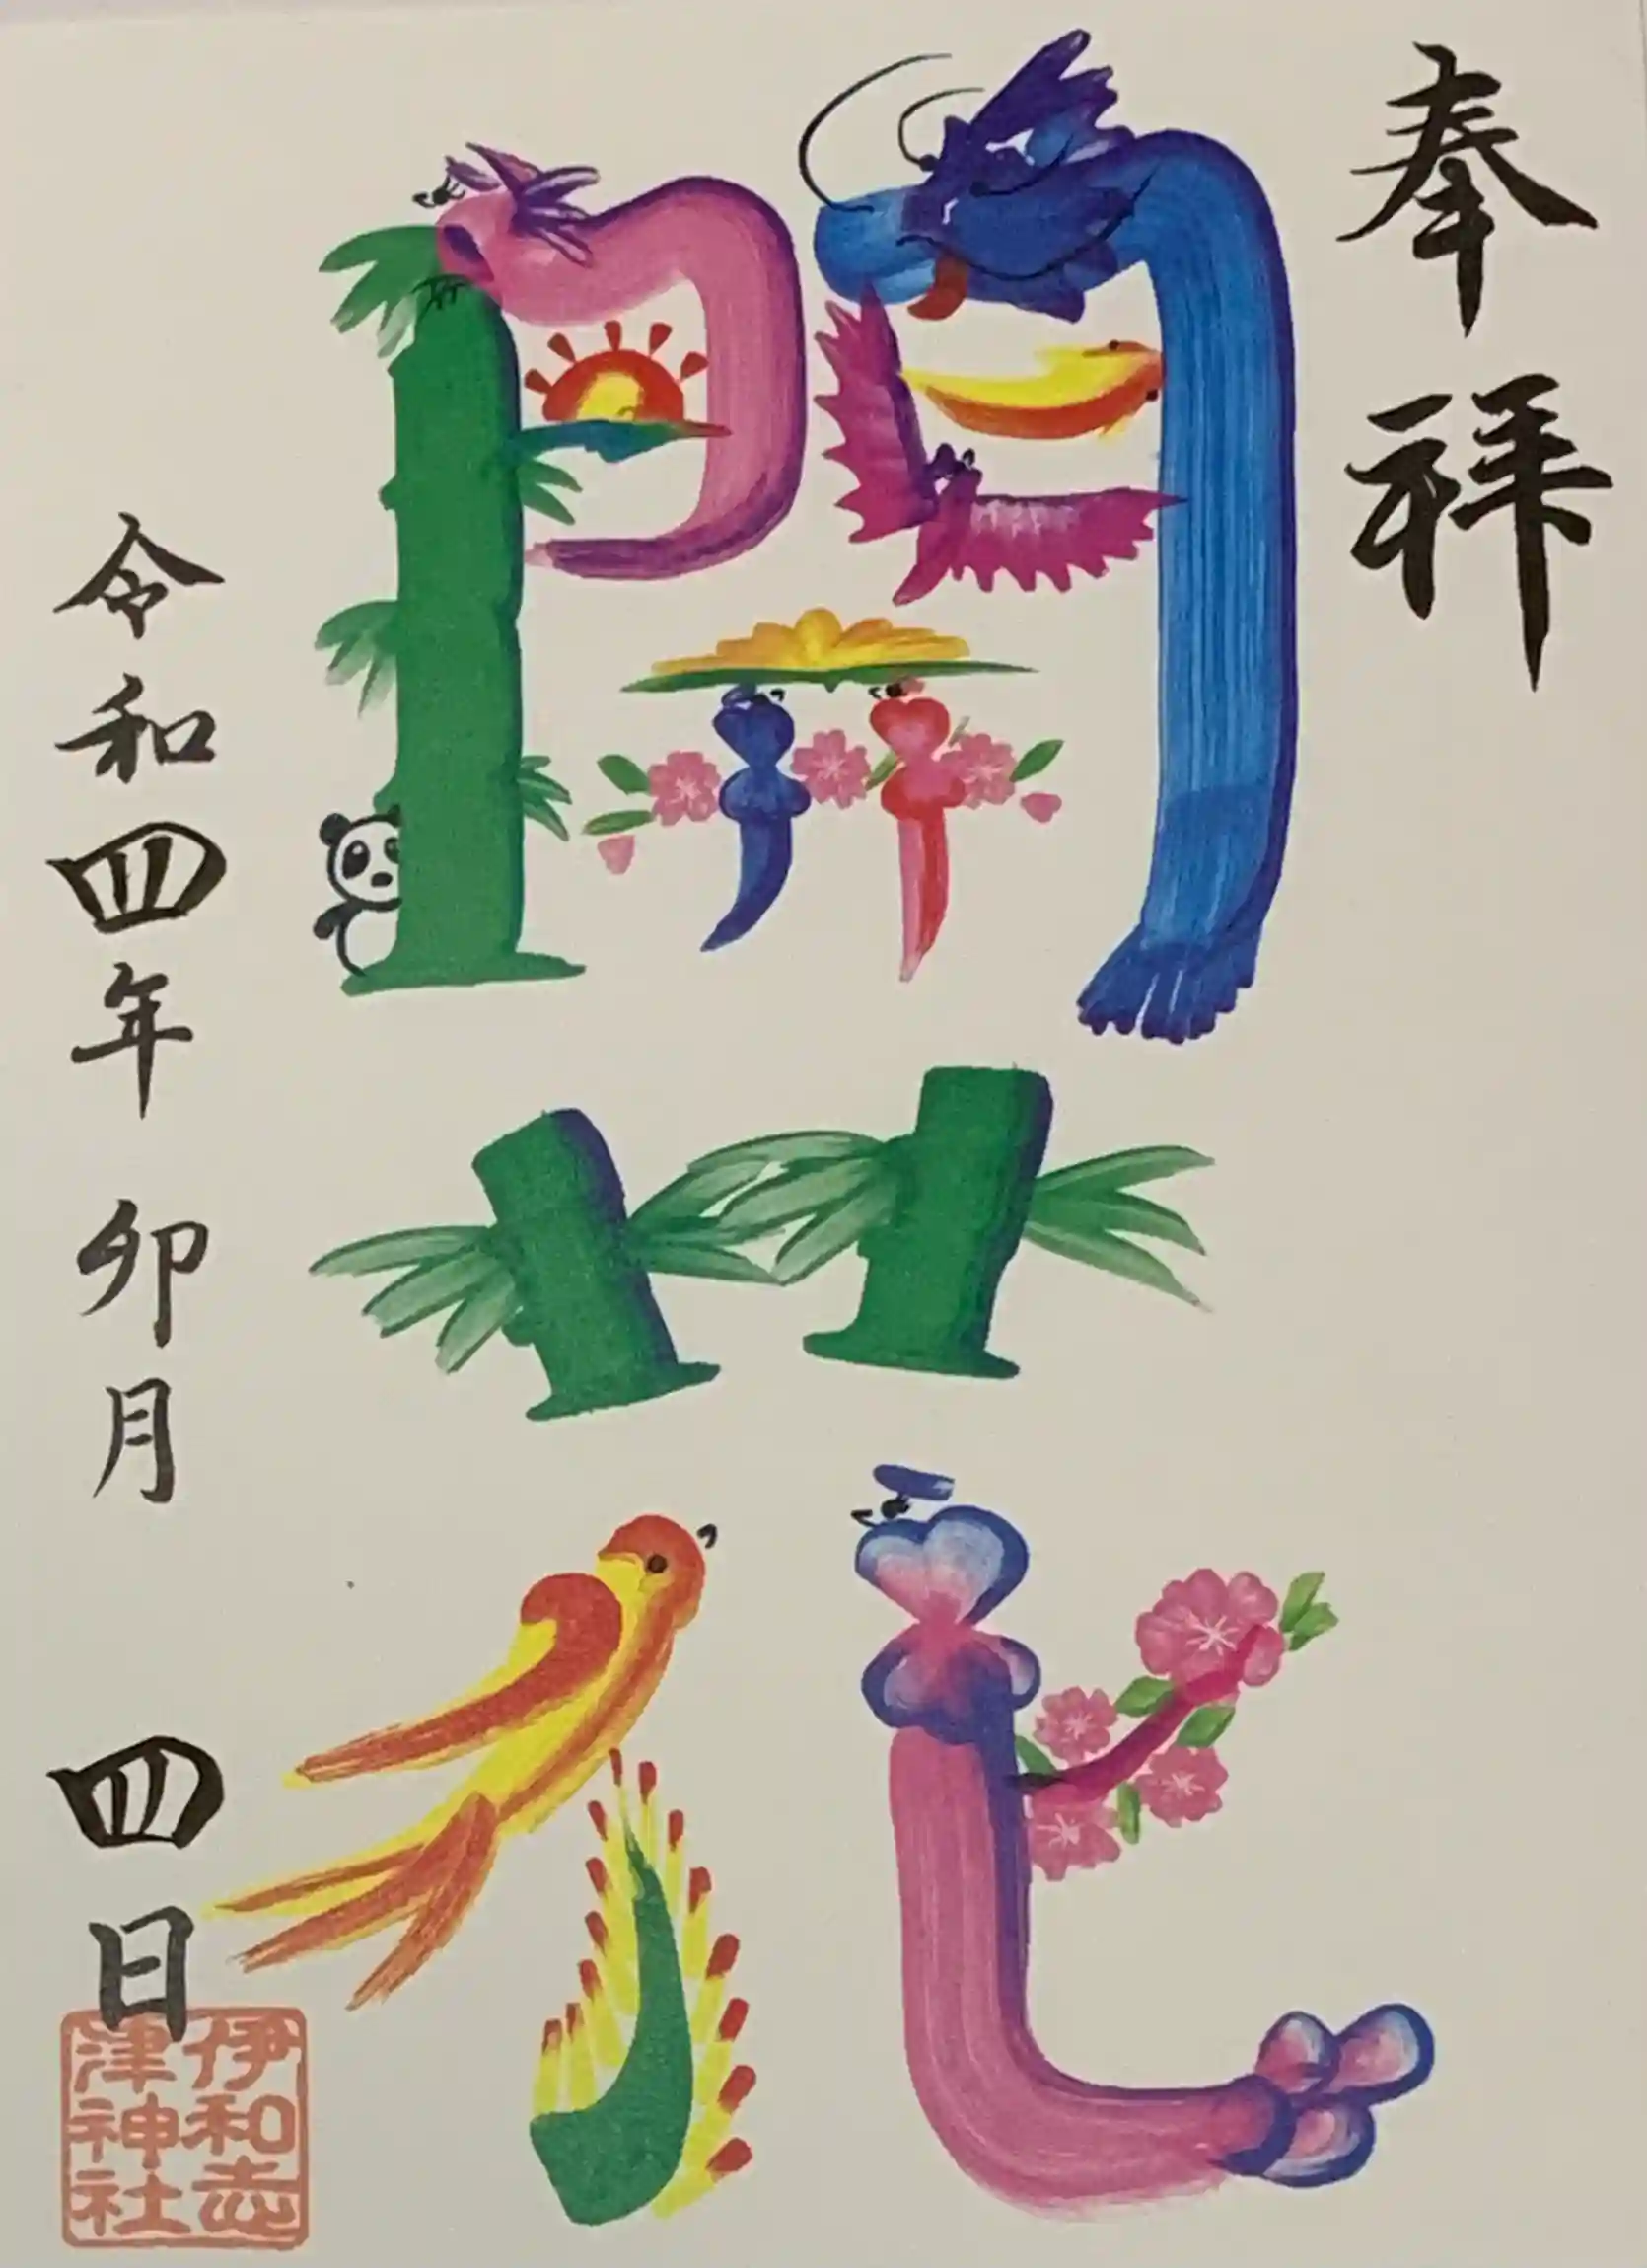 奉拝
開花
令和四年 卯月 四日
伊和志津神社